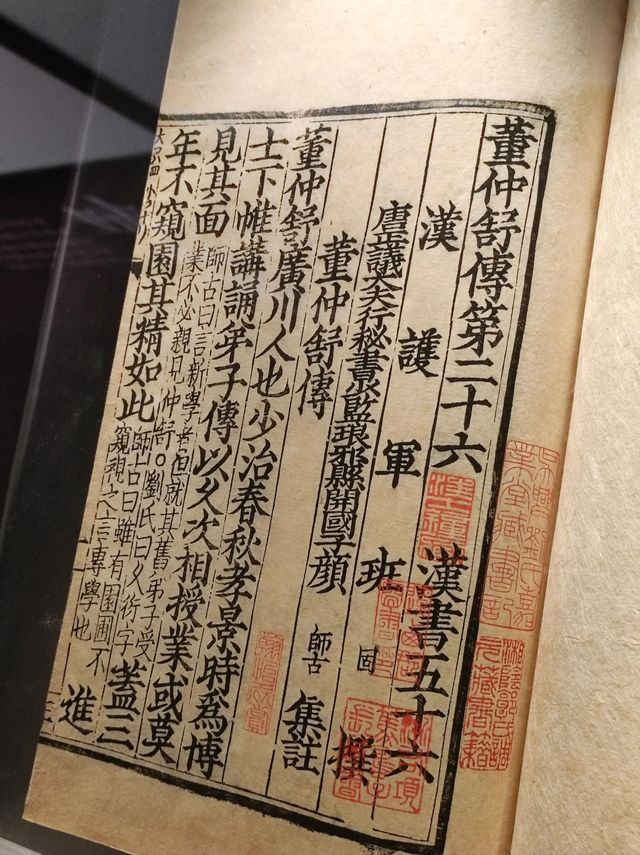 董仲舒傳第二十六 漢書五十六
漢護軍班固撰
唐正議大夫行秘書少監琅邪縣開國子顏師古集註
董仲舒傳
董仲舒廣川人也少治春秋孝景時爲博
士下帷講誦弟子傳以久次相授業或莫
見其面
師古曰言新學者但就其舊弟子受
業不必親見仲舒○劉氏曰久衍字
蓋三
年不窺園其精如此
師古曰雖有園圃不
窺視之言專學也
進
吳興劉氏嘉業堂藏書記